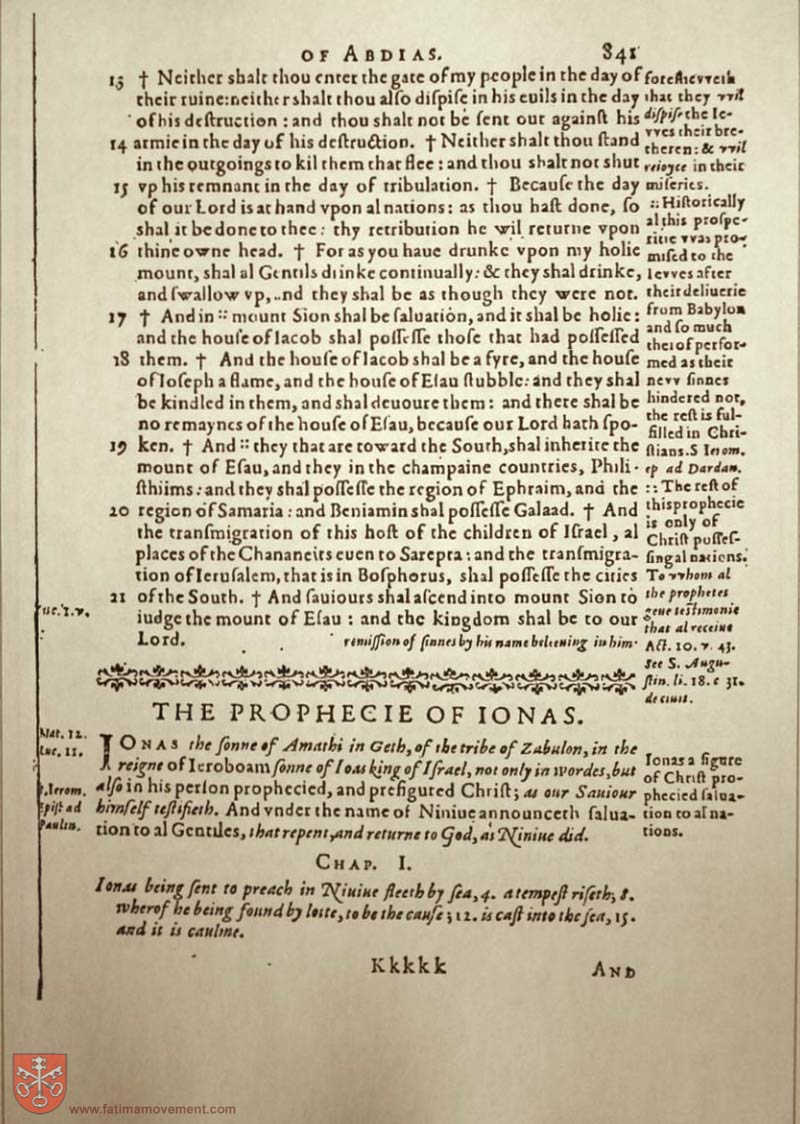 OF ABDIAS. 841
13 † Neither shalt thou enter the gate of my people in the day of
their ruine: neither shalt thou also dispise in his euils in the day
of his destruction : and thou shalt not be sent out against his
14 armie in the day of his destruction. † Neither shalt thou stand
in the outgoings to kil them that flee : and thou shalt not shut
15 vp his remnant in the day of tribulation. † Because the day
of our Lord is at hand vpon al nations: as thou hast done, so
shal it be done to thee: thy retribution he wil returne vpon
16 thine owne head. † For as you haue drunke vpon my holie
mount, shal al Gentils drinke continually: & they shal drinke,
and swallow vp, and they shal be as though they were not.
17 † And in :: mount Sion shal be saluation, and it shal be holie:
and the house of Iacob shal possesse those that had possessed
18 them. † And the house of Iacob shal be a fyre, and the house
of Ioseph a flame, and the house of Esau stubble: and they shal
be kindled in them, and shal deuoure them : and there shal be
no remaynes of the house of Esau, because our Lord hath spo-
19 ken. † And :: they that are toward the South, shal inherite the
mount of Esau, and they in the champaine countries, Phili-
sthiims: and they shal possesse the region of Ephraim, and the
20 region of Samaria : and Beniamin shal possesse Galaad. † And
the transmigration of this host of the children of Israel, al
places of the Chananeits euen to Sarepta: and the transmigra-
tion of Ierusalem, that is in Bosphorus, shal possesse the cities
21 of the South. † And sauiours shal ascend into mount Sion to
iudge the mount of Esau : and the kingdom shal be to our
Lord. remission of sinnes by his name beleeuing in him.
foresheweth
that they wil
dispise the Ie-
wes their bre-
theren: & wil
reioyce in their
miseries.
:: Historically
al this prospe-
ritie was pro-
mised to the
Iewes after
their deliuerie
from Babylon
and so much
therof perfor-
med as their
new sinnes
hindered not,
the rest is ful-
filled in Chri-
stians. S Ierom.
ep ad Dardan.
:: The rest of
this prophecie
is only of
Christ posses-
sing al nacions.
To whom al
the prophetes
geue testimonie
that al receiue
Act. 10. v. 43.
see S. Augu-
stin. li. 18. c 31.
de ciuit.
Luc. 1. v.
THE PROPHECIE OF IONAS.
Mat. 12.
Luc. 11.
S. Ierom.
Epist ad
Paulin.
IONAS the sonne of Amathi in Geth, of the tribe of Zabulon, in the
reigne of Ieroboam sonne of Ioas king of Israel, not only in wordes, but
also in his person prophecied, and prefigured Christ; as our Sauiour
himself testifieth. And vnder the name of Niniue announceth salua-
tion to al Gentiles, that repent, and returne to God, as Niniue did.
Ionas a figure
of Christ pro-
phecied salua-
tion to al na-
tions.
CHAP. I.
Ionas being sent to preach in Niniue fleeth by sea, 4. a tempest riseth; 8.
wherof he being found by lotte, to be the cause ; 12. is cast into the sea, 15.
and it is caulme.
Kkkkk AND
www.fatimamovement.com